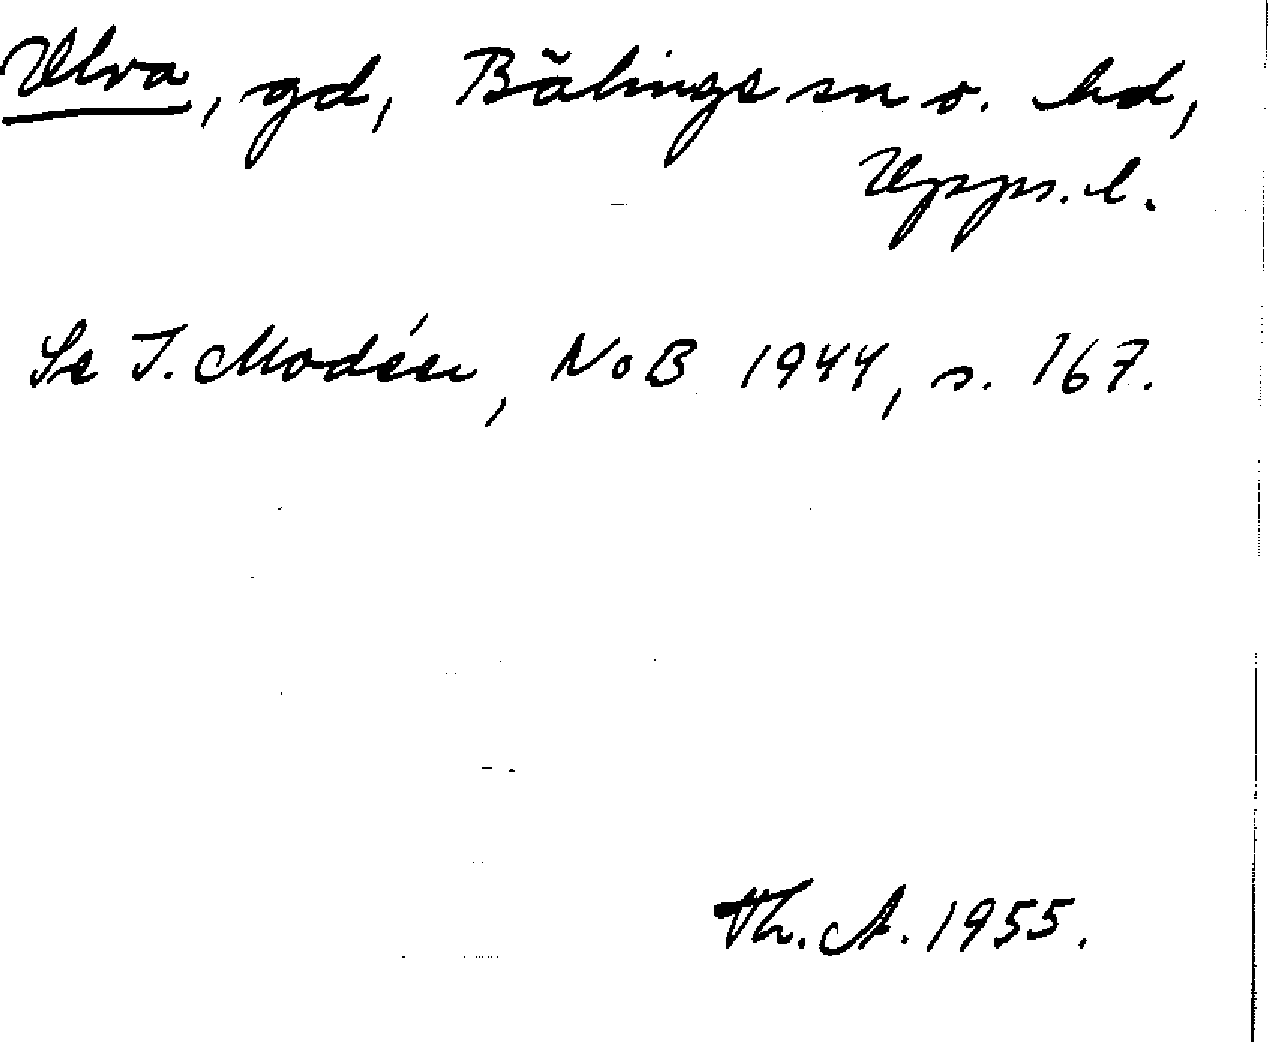 Ulva, gd, Bälings sn o. hd,
Upps. l.
Se I. Modéer, NoB 1944, s. 167.
Th. A. 1955.